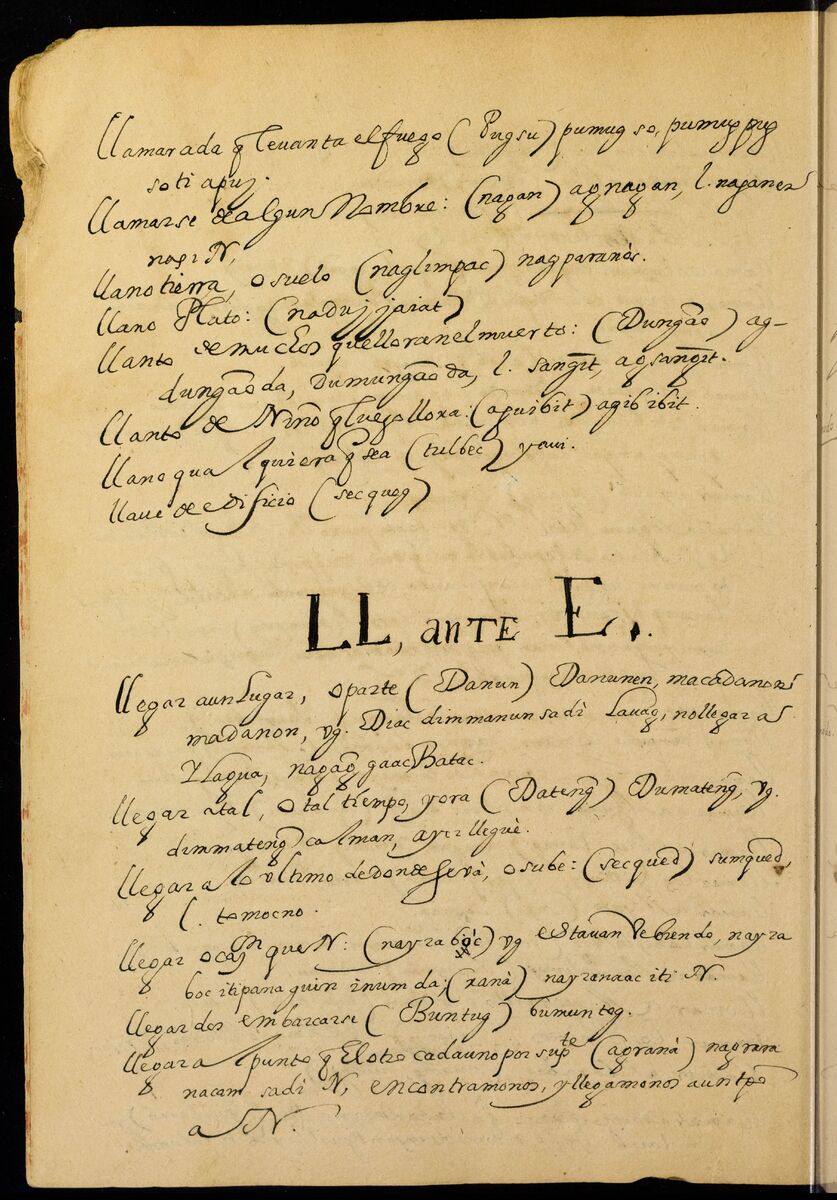 llamarada q̃ levanta el fuego ( Pugsu ) pumug so, pumug pug
so ti apuj.
llamarse de algun Nombre: (nagan) agnagan, l. naganen
nasi N,
llano tierra, o suelo (naglimpac) nagparanàs.
llano Plato: (naduj jaiat)
llanto de muchos que lloran el muerto: (Dungão) ag-
dungão da, Dumungão da, l. sangit, agsangit.
llanto de Niño q̃ luego llora: (apuibit) agibibit.
llano qualquiera q̃ sea (tulbec) yaui.
llave de edificio (secqueg)
LL, ante E..
llegar a un Lugar, o parte ( Danun) Danunen, macadanon
madanon, vg. Diac dimmanun sadi Lauag, no llegar a
Ylagua, nagãg gaac Batac.
llegar a tal, o tal tiempo, y ora ( Dateng ) Dumateng, vg.
dimmateng calman, ayer lleguè.
llegar a lo ultimo de donde se và, o sube: (secqued) sumqued,
l. tomocno.
llegar ocasn que N: (nayrabòc) vg estavan bebiendo, nayra
boc iti panaguin inum da; (ranà) nayranaac iti N.
llegar dos embarcarse ( Buntug ) bumuntog.
llegar al punto q̃ el otro cada uno por su pte (agranà) nagrara
nacam sadi N, encontramonos, y llegamonos a un tpo
a N.